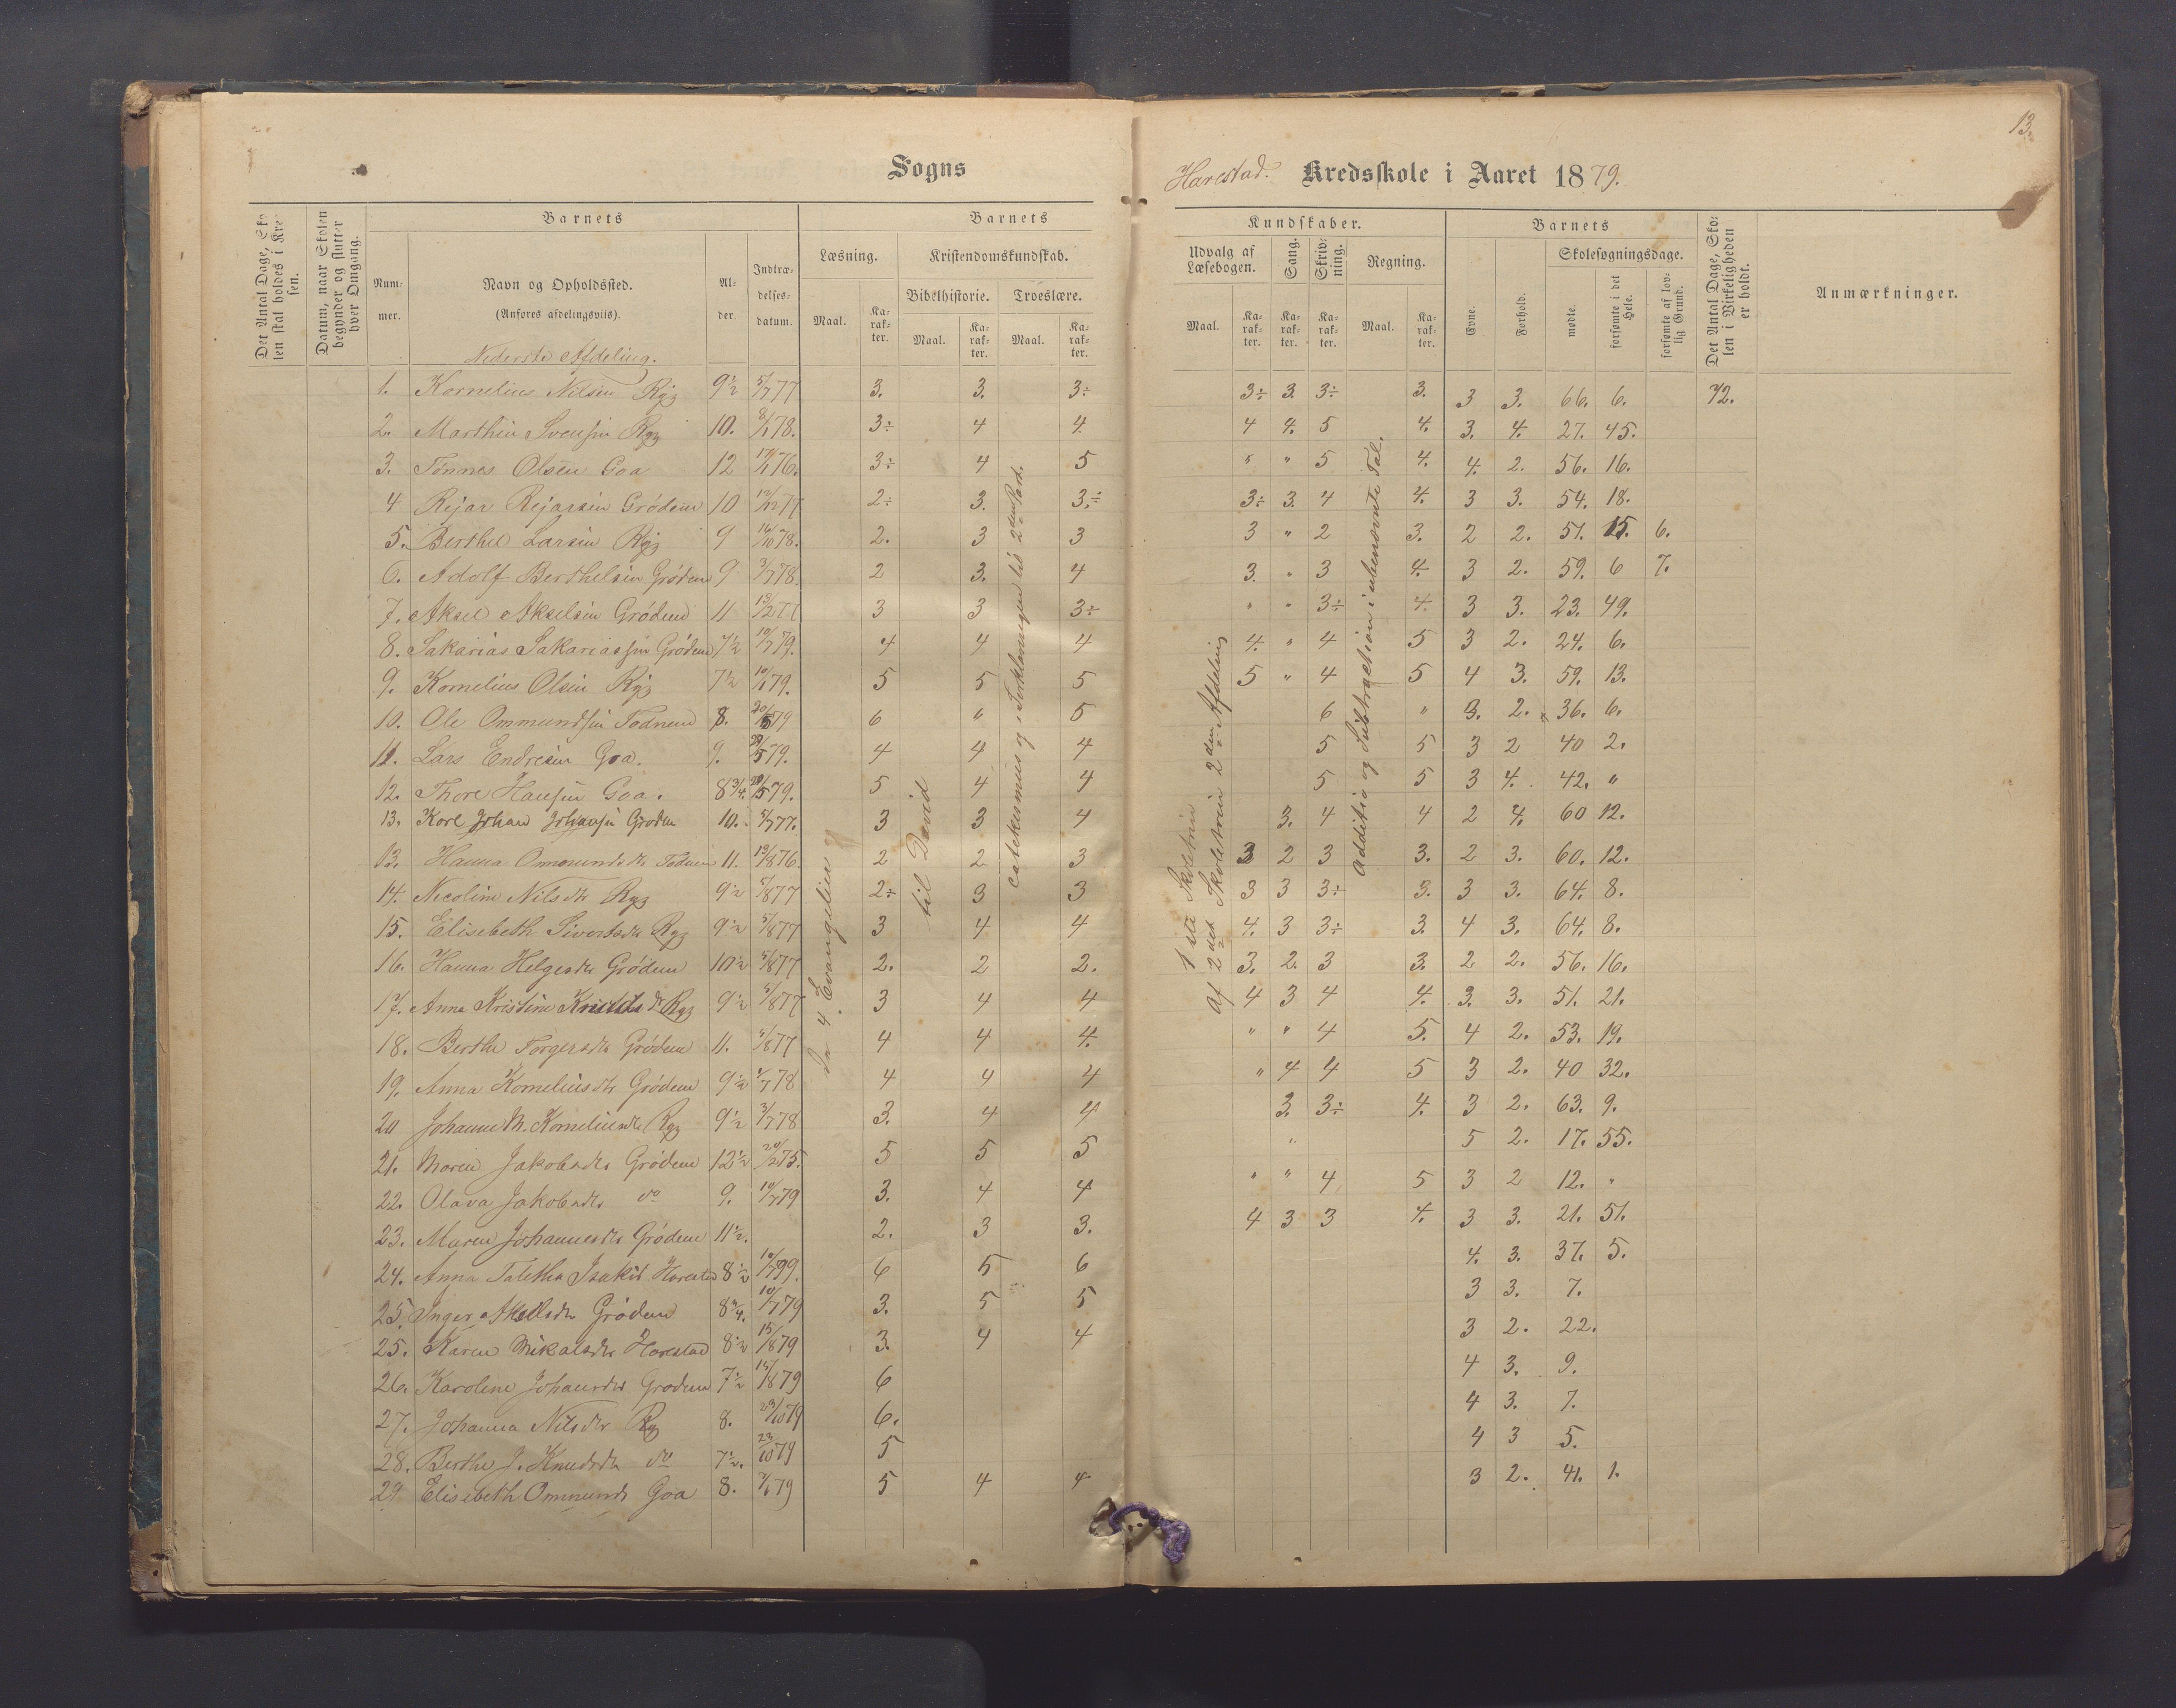 13.
Sogns
Harestad. Kredsskole i Aaret 1879.
Det Antal Dage, Sko-
len skal holdes i Kre-
sen.
Datum, naar Skolen
begynder og slutter
hver Omgang.
Barnets
Num-
mer.
Navn og Opholdssted.
(Anføres afdelingsviis).
Al-
der.
Indtræ-
delses-
datum.
Barnets
Læsning.
Maal.
Ka-
rak-
ter.
Kristendomskundskab.
Bibelhistorie.
Maal.
Ka-
rak-
ter.
Troeslære.
Maal.
Ka-
rak-
ter.
Kundskaber.
Udvalg af
Læsebogen.
Maal.
Ka-
rak-
ter.
Sang.
Ka-
rak-
ter.
Skriv-
ning.
Ka-
rak-
ter.
Regning.
Maal.
Ka-
rak-
ter.
Barnets
Evne.
Forhold.
Skolesøgningsdage.
mødte.
forsømte i det
Hele.
forsømte af lov-
lig Grund.
Det Antal Dage, Sko-
len i Virkeligheden
er holdt.
Anmærkninger.
Nederste Afdeling.
1. Kornelius Nilsen Ryg 9½ 5/7 77 3. 3. 3÷ 3÷ 3. 3÷ 3. 3 3. 66. 6. 72.
2. Marthin Svensen Ryg 10. 8/1 78. 3÷ 4 4. 4 4. 5 4. 3. 4. 27. 45.
3. Tønnes Olsen Goa 12 17/1 76. 3÷ 4 5 " " 5 4. 4. 2. 56. 16.
4 Rejar Rejarsen Grødem 10 12/12 77 2÷ 3. 3.÷ 3÷ 3. 4 4. 3 3. 54. 18.
5. Berthel Larsen Ryg 9 16/10 78. 2. 3 3 3 " 2 3. 2 2. 51. 15. 6.
6. Adolf Berthelsen Grødem 9 3/7 78. 2 3. 4 3. " 3 4. 3 2. 59. 6 7.
7. Aksel Akselsen Grødem 11 13/2 77 3 3 3÷ " " 3÷ 4. 3 3. 23. 49.
8. Sakarias Sakariassen Grødem 7½ 10/7 79. 4 4 4 4. " 4 5 3 2. 24. 6.
9. Kornelius Olsen Ryg 7½ 10/1 79. 5 5 5 5 " 4 5 4 3. 59. 13.
10. Ole Ommundsen Todnem 8. 20/5 79 6 " 5 6 " 3. 2. 36. 6.
11. Lars Endresen Goa. 9. 20/5 79. 4 4 4 5 5 3 2 40 2.
12. Thore Hansen Goa. 8¾. 20/5 79. 5 4 4 5 5 3 4. 42. "
13. Karl Johan Johansen Grødem 10. 5/7 77. 3 3 4 3. 4 4 2 4. 60 12.
13. Hanna Ommundsdr Todnem 11. 19/8 76. 2. 2 3 3 2 3 3. 2 3. 60. 12.
14. Nicoline Nilsdtr Ryg 9½ 5/8 77 2÷ 3 3 3 3 3÷ 3. 3 3. 64. 8.
15. Elisebeth Sivertsdr Ryg 9½ 5/8 77 3 4 4 4. 3 3÷ 3. 4 3. 64. 8.
16. Hanna Helgesdr Grødem 10½ 5/8 77 2. 2 2. 3. 2. 3 3. 2 2. 56. 16.
17. Anna Kristine Knudsdr Ryg 9½ 5/8 77 3 4 4 4 3 4 4. 3. 3. 51. 21.
18. Berthe Torgersdr Grødem 11. 5/8 77 4 4 4. " " 4 5. 4 2. 53. 19.
19. Anna Korneliusdtr Grødem 9½ 1/7 78 4 4 4 " 4 4 5 3 2. 40 32.
20 Johanne M. Korneliusdr Ryg 9½ 3/7 78 3. 4 4 3. 3÷ 4. 3 2. 63. 9.
21. Maren Jakobsdr Grødem 12½ 20/2 75. 5 5 5 " 5 2. 17. 55.
22. Olava Jakobsdr do 9. 10/7 79 3. 4 4 " " 4 5 3 2 12. "
23. Maren Johannesdr Grødem 11½. 2. 3 3. 4 3 3 4. 3 3. 21. 51.
24. Anna Taletha Isaksd Harestad 8½ 10/7 79. 6 5 6 4. 3. 37. 5.
25. Inger Akselsdr Grødem 8¾. 10/7 79 3. 5 5 3 3. 7.
25. Karen Mikalsdr Harestad 8½ 15/8 79 3. 4 4 3 2. 22.
26. Karoline Johansdr Grødem 7½ 15/8 79 6 4 3. 9.
27. Johanna Nilsdtr Ryg 8. 23/10 79 6. 4 3. 7.
28. Berthe J. Knudsdr do 7½. 23/10 79 5 4 3 5.
29 Elisebeth Ommunds Goa 8. 7/1 79 5 4 4 3 2. 41. 1.
4 Evangelier
til David
catekesmus og Forklaringen til 2den Part.
1ste Skoletrin
af 2det Skoletrin 2den Afdeling
Additio og Subtraction i ubenævnte Tal.